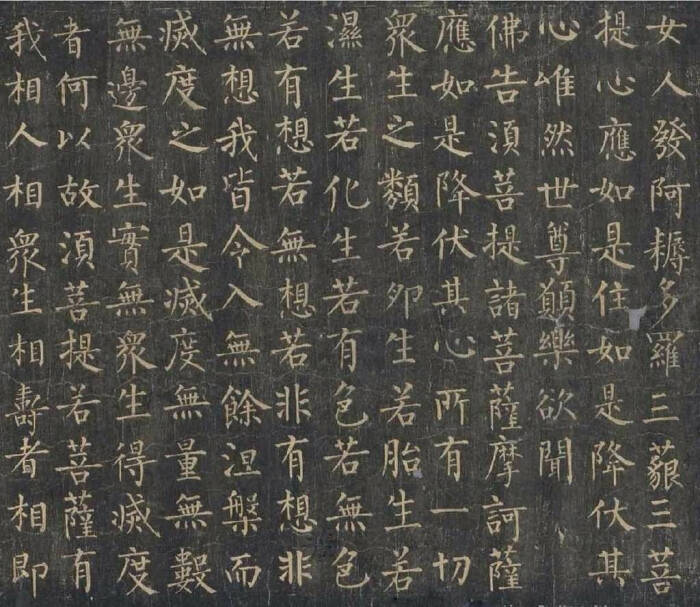 女人發阿耨多羅三藐三菩
提心應如是住如是降伏其
心唯然世尊願樂欲聞
佛告須菩提諸菩薩摩訶薩
應如是降伏其心所有一切
衆生之類若卵生若胎生若
濕生若化生若有色若無色
若有想若無想若非有想非
無想我皆令入無餘涅槃而
滅度之如是滅度無量無數
無邊衆生實無衆生得滅度
者何以故須菩提若菩薩有
我相人相衆生相壽者相即